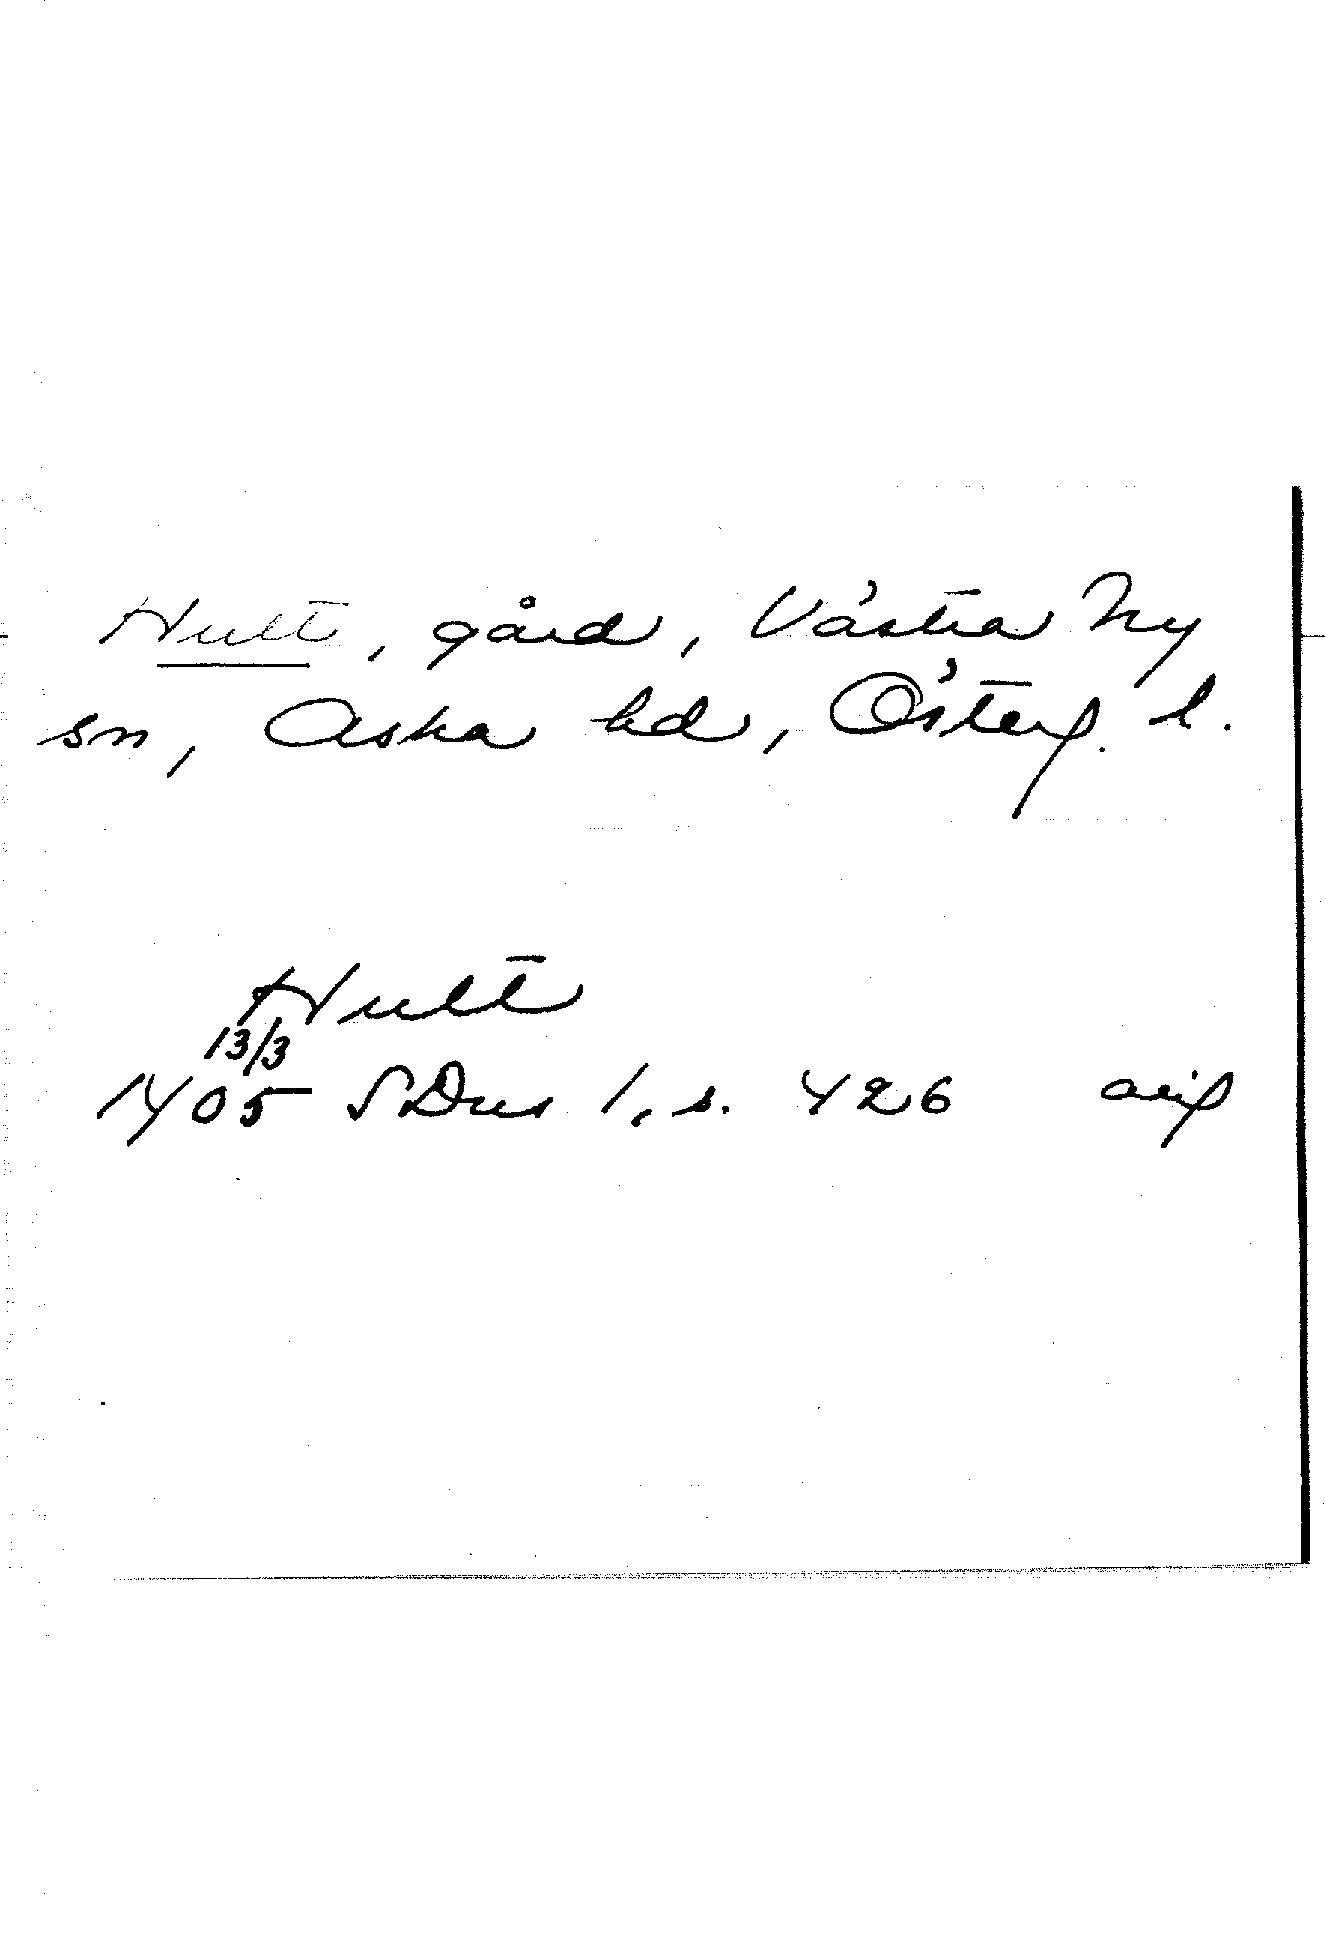 Hult, gård, Västra Ny
sn, Aska hd, Österg. l.
Hult
13/3
1405 SDns 1, s. 426 orig